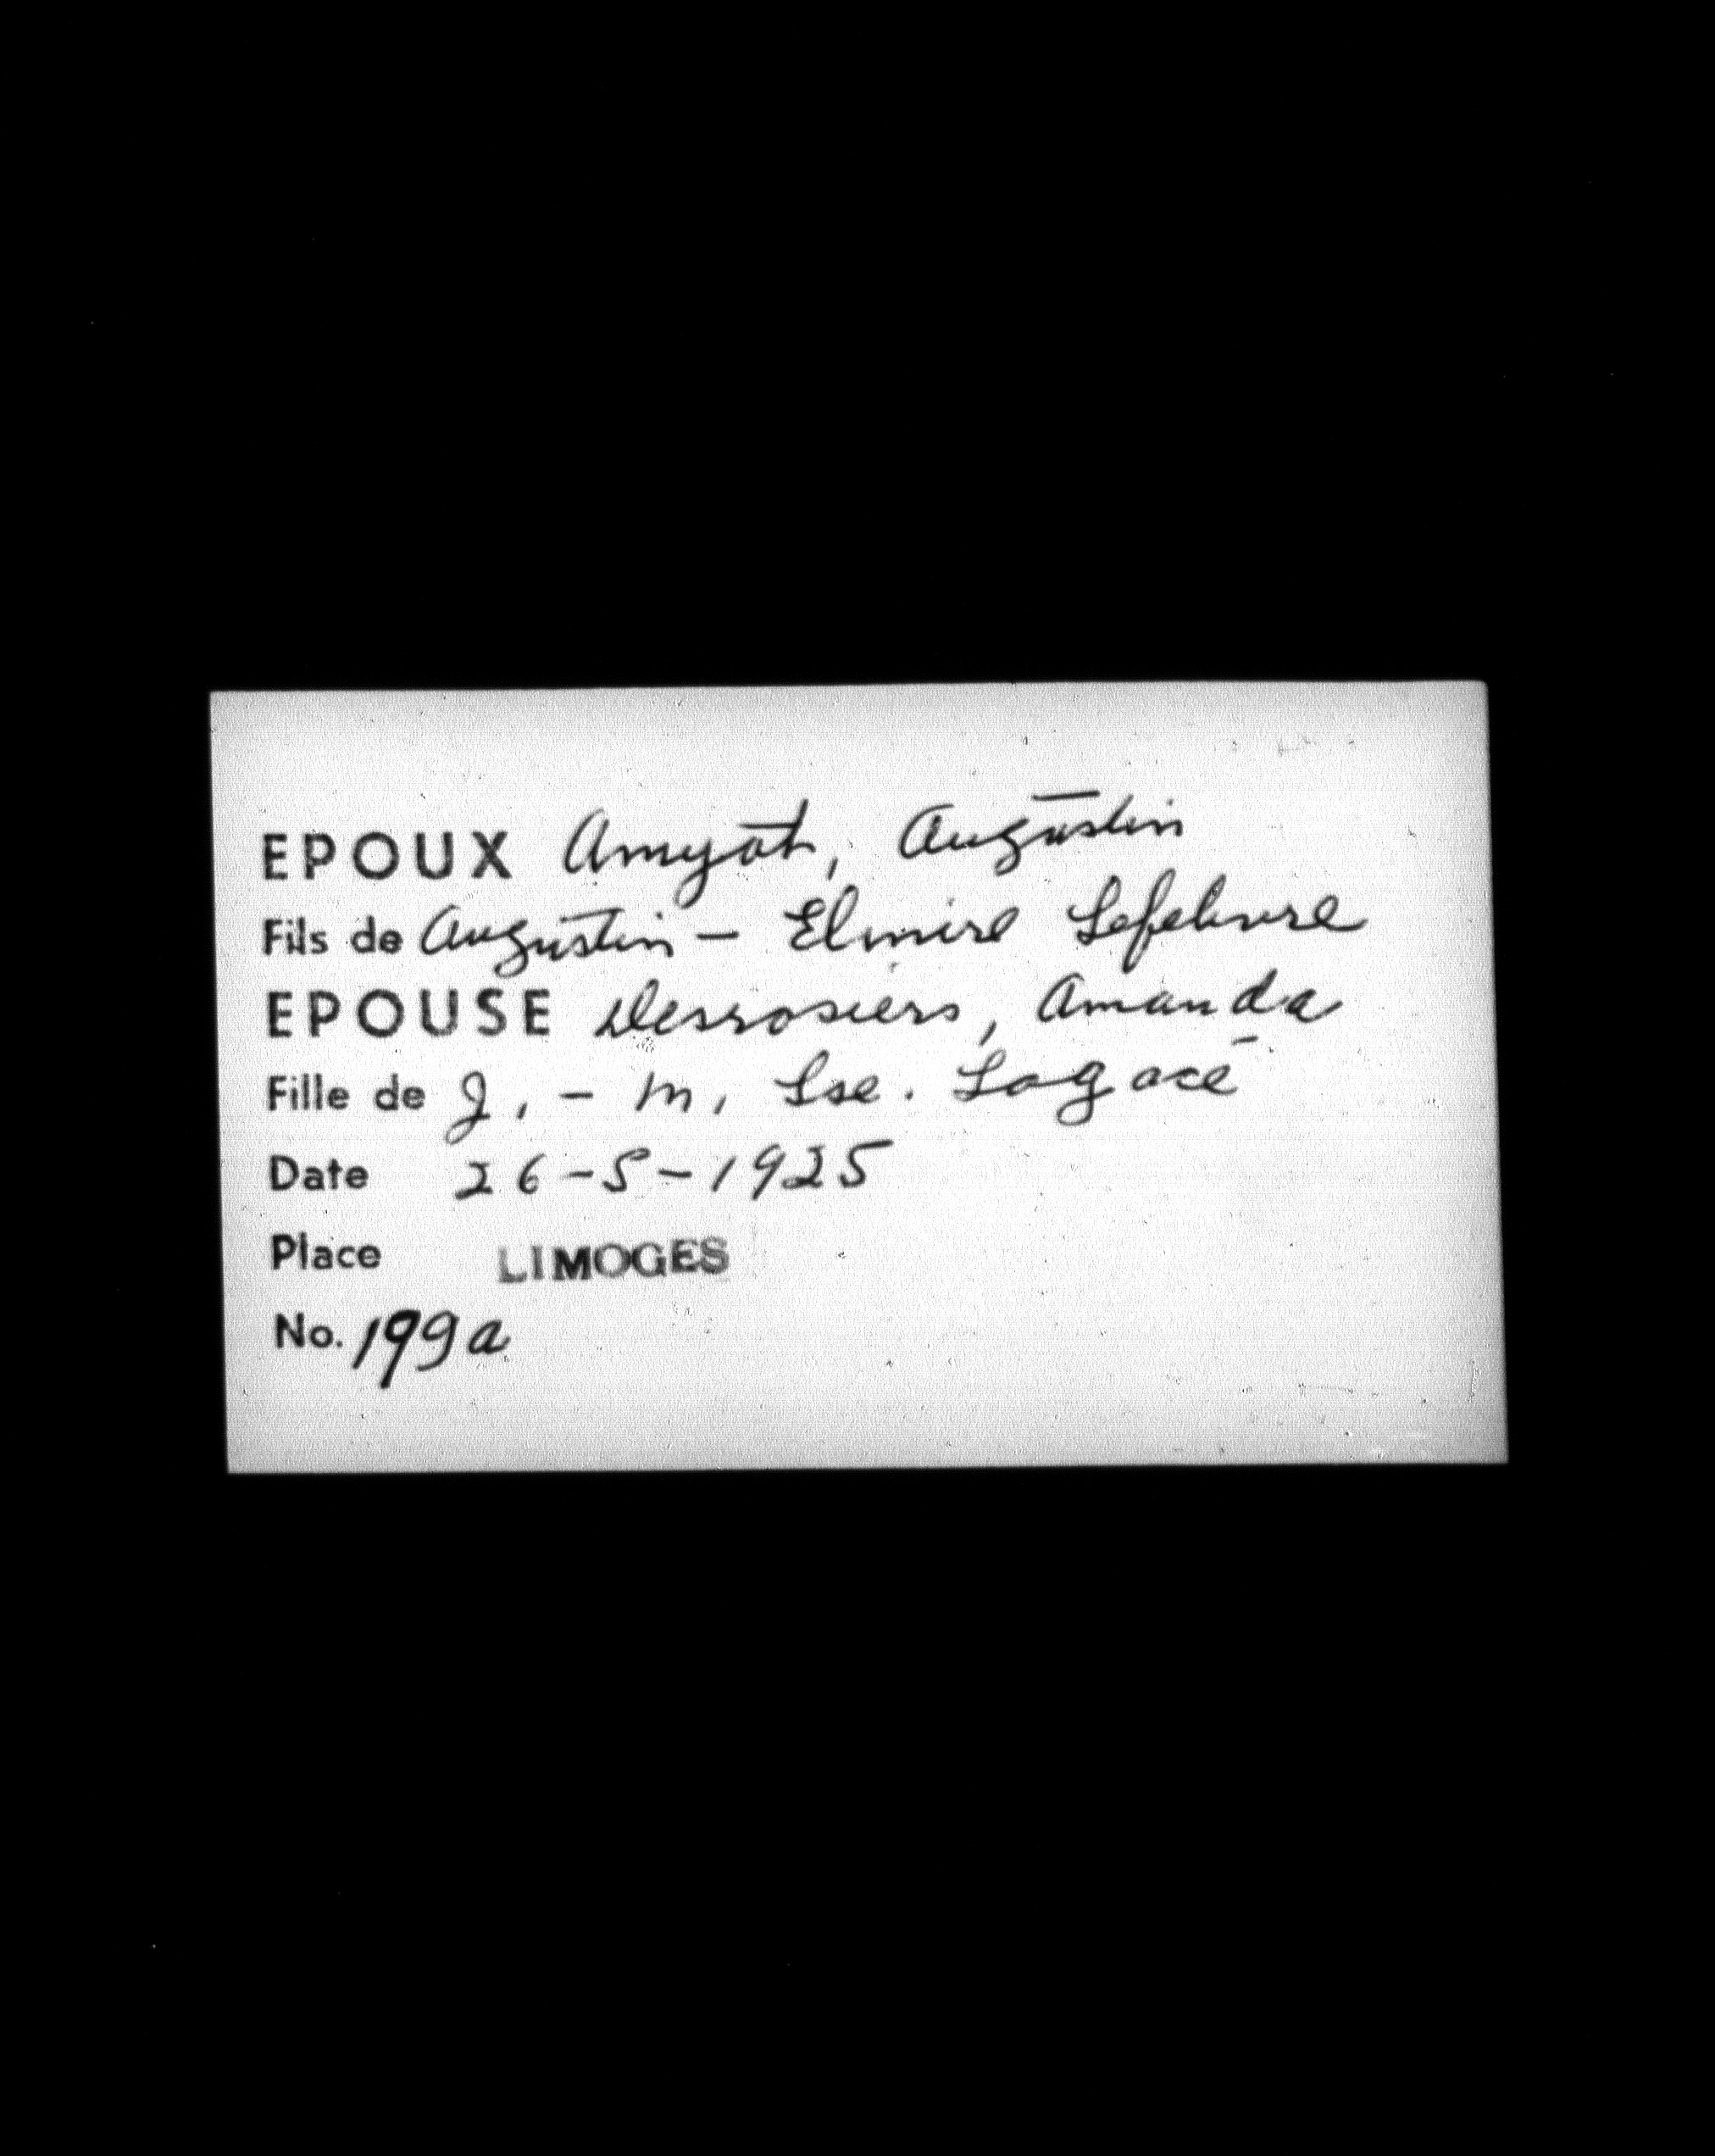 EPOUX Amyot, Augustin
Fils de Augustin - Elmire Lefebvre
EPOUSE Desrosiers, Amanda
Fille de J. - M. Lse. Lagacé
Date 26-5-1925
Place LIMOGES
No. 199a